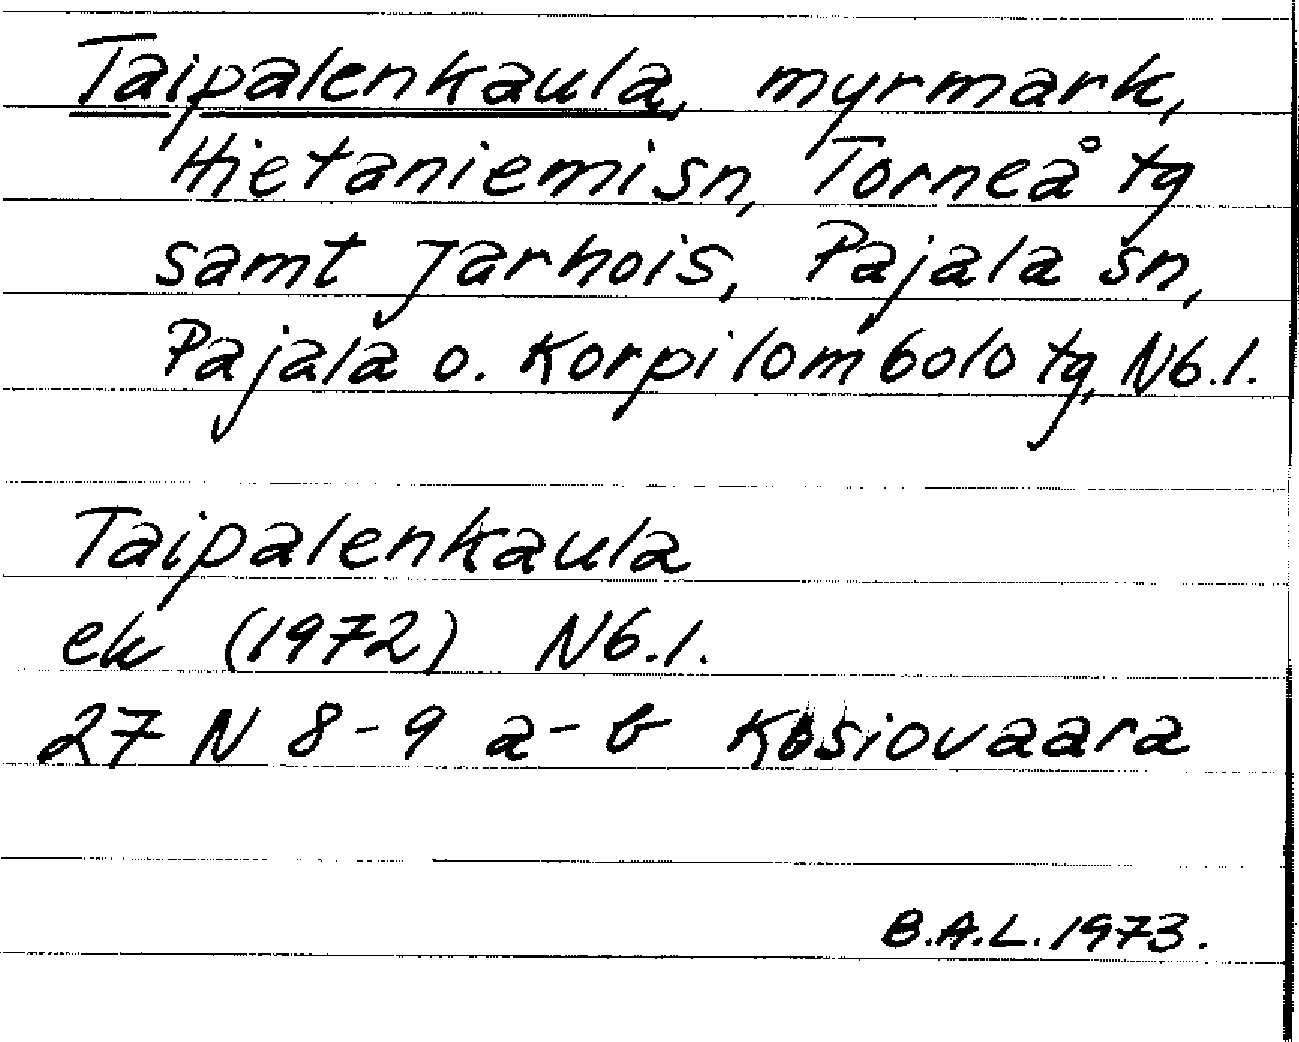 Taipalenkaula, myrmark,
Hietaniemi sn, Torneå tg
samt Jarhois, Pajala sn,
Pajala o. Korpilombolo tg, Nb.l.
Taipalenkaula
ek (1972) Nb.l.
27 N 8-9 a-b Kosiovaara
B.A.L. 1973.